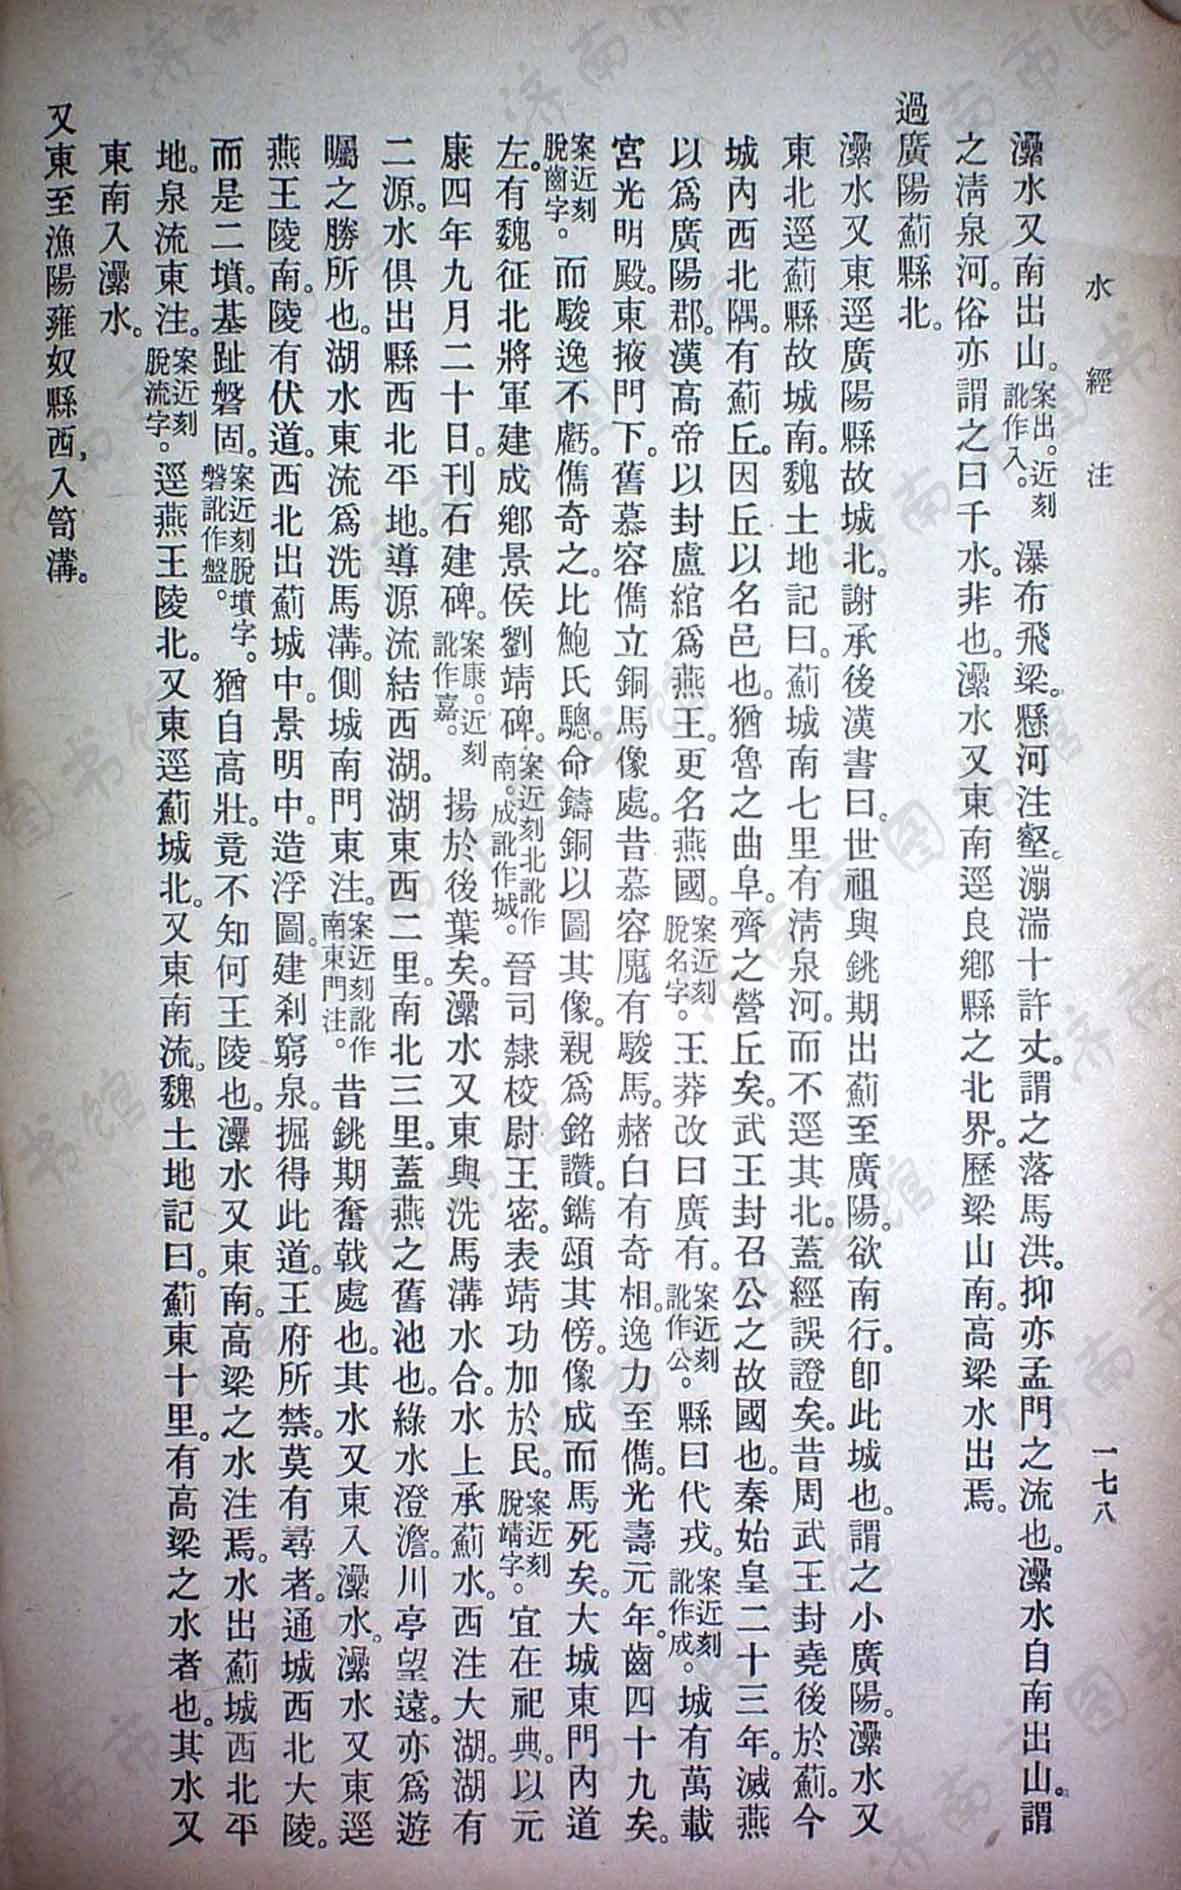 水經注
一七八
灅水又南出山。案出。近刻訛作入。瀑布飛梁。懸河注壑。漰湍十許丈。謂之落馬洪。抑亦孟門之流也。灅水自南出山。謂
之淸泉河。俗亦謂之曰千水。非也。灅水又東南逕良鄉縣之北界。歷梁山南。高梁水出焉。
過廣陽薊縣北。
灅水又東逕廣陽縣故城北。謝承後漢書曰。世祖與銚期出薊至廣陽。欲南行。卽此城也。謂之小廣陽。灅水又
東北逕薊縣故城南。魏土地記曰。薊城南七里有淸泉河。而不逕其北。蓋經誤證矣。昔周武王封堯後於薊。今
城內西北隅。有薊丘。因丘以名邑也。猶魯之曲阜。齊之營丘矣。武王封召公之故國也。秦始皇二十三年。滅燕
以爲廣陽郡。漢高帝以封盧綰爲燕王。更名燕國。案近刻脫名字。王莽改曰廣有。案近刻訛作公。縣曰代戎。案近刻訛作成。城有萬載
宮光明殿。東掖門下。舊慕容儁立銅馬像處。昔慕容廆有駿馬。赭白有奇相。逸力至儁。光壽元年。齒四十九矣。
案近刻脫齒字。而駿逸不虧。儁奇之。比鮑氏驄。命鑄銅以圖其像。親爲銘讚。鐫頌其傍。像成而馬死矣。大城東門內道
左。有魏征北將軍建成鄉景侯劉靖碑。案近刻北訛作南。成訛作城。晉司隸校尉王密。表靖功加於民。案近刻脫靖字。宜在祀典。以元
康四年九月二十日。刊石建碑。案康。近刻訛作嘉。揚於後葉矣。灅水又東與洗馬溝水合。水上承薊水。西注大湖。湖有
二源。水俱出縣西北平地。導源流結西湖。湖東西二里。南北三里。蓋燕之舊池也。綠水澄澹。川亭望遠。亦爲遊
矚之勝所也。湖水東流爲洗馬溝。側城南門東注。案近刻訛作南東門注。昔銚期奮戟處也。其水又東入灅水。灅水又東逕
燕王陵南。陵有伏道。西北出薊城中。景明中。造浮圖。建刹窮泉。掘得此道。王府所禁。莫有尋者。通城西北大陵。
而是二墳。基趾磐固。案近刻脫墳字。磐訛作盤。猶自高壯。竟不知何王陵也。灅水又東南。高梁之水注焉。水出薊城西北平
地。泉流東注。案近刻脫流字。逕燕王陵北。又東逕薊城北。又東南流。魏土地記曰。薊東十里。有高梁之水者也。其水又
東南入灅水。
又東至漁陽雍奴縣西，入笥溝。